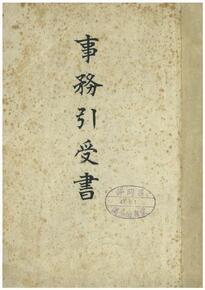 事務引受書